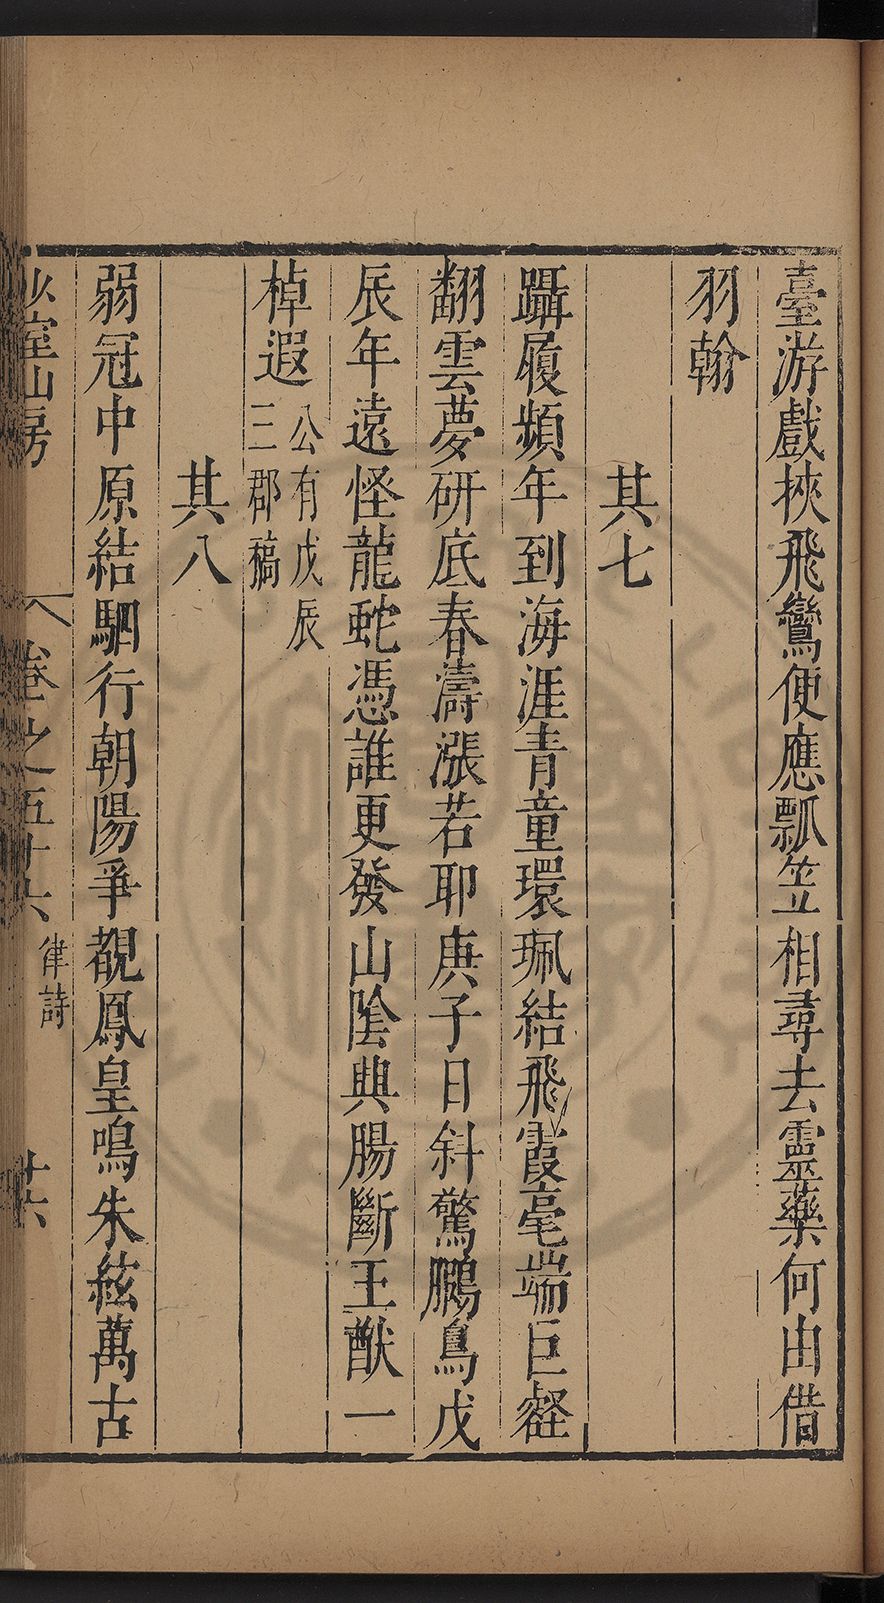 臺游戲挾飛鸞便應瓢笠相尋去靈藥何由借
羽翰
其七
躡履頻年到海涯青童環珮結飛霞毫端巨壑
翻雲夢研底春濤漲若耶庚子日斜驚鵩鳥戊
辰年遠怪龍蛇憑誰更發山陰興腸斷王猷一
棹遐
公有戊辰
三郡稿
其八
弱冠中原結駟行朝陽爭覩鳳皇鳴朱絃萬古
室山房
卷之五十六
律詩
十六